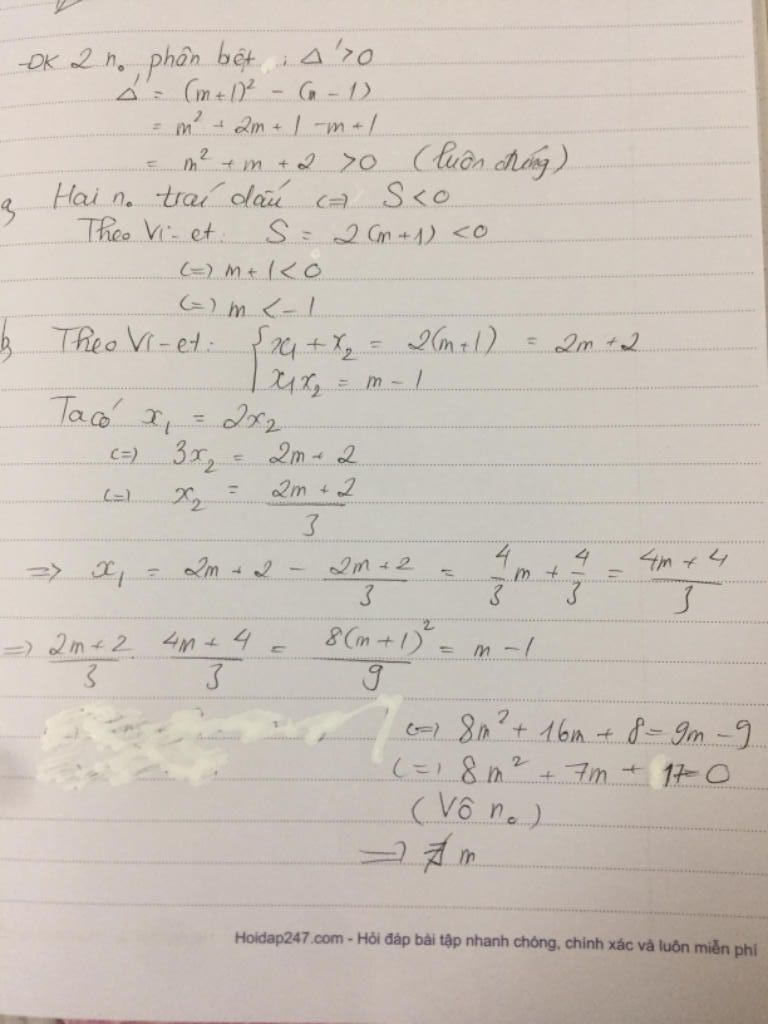 -ĐK 2 n₀ phân bệt : Δ' > 0
Δ' = (m+1)² - (m - 1)
= m² + 2m + 1 - m + 1
= m² + m + 2 > 0 (luôn đúng)
a, Hai n₀ trái dấu (=) S < 0
Theo Vi-et: S = 2(m+1) < 0
(=) m + 1 < 0
(=) m < -1
b, Theo Vi-et: { x₁ + x₂ = 2(m+1) = 2m + 2
x₁x₂ = m - 1
Ta có x₁ = 2x₂
(=) 3x₂ = 2m + 2
(=) x₂ = (2m + 2)/3
=> x₁ = 2m + 2 - (2m + 2)/3 = 4/3 m + 4/3 = (4m + 4)/3
=> (2m + 2)/3 . (4m + 4)/3 = 8(m + 1)²/9 = m - 1
(=) 8m² + 16m + 8 = 9m - 9
(=) 8m² + 7m + 17 = 0
(Vô n₀)
=> ∄ m
Hoidap247.com - Hỏi đáp bài tập nhanh chóng, chính xác và luôn miễn phí